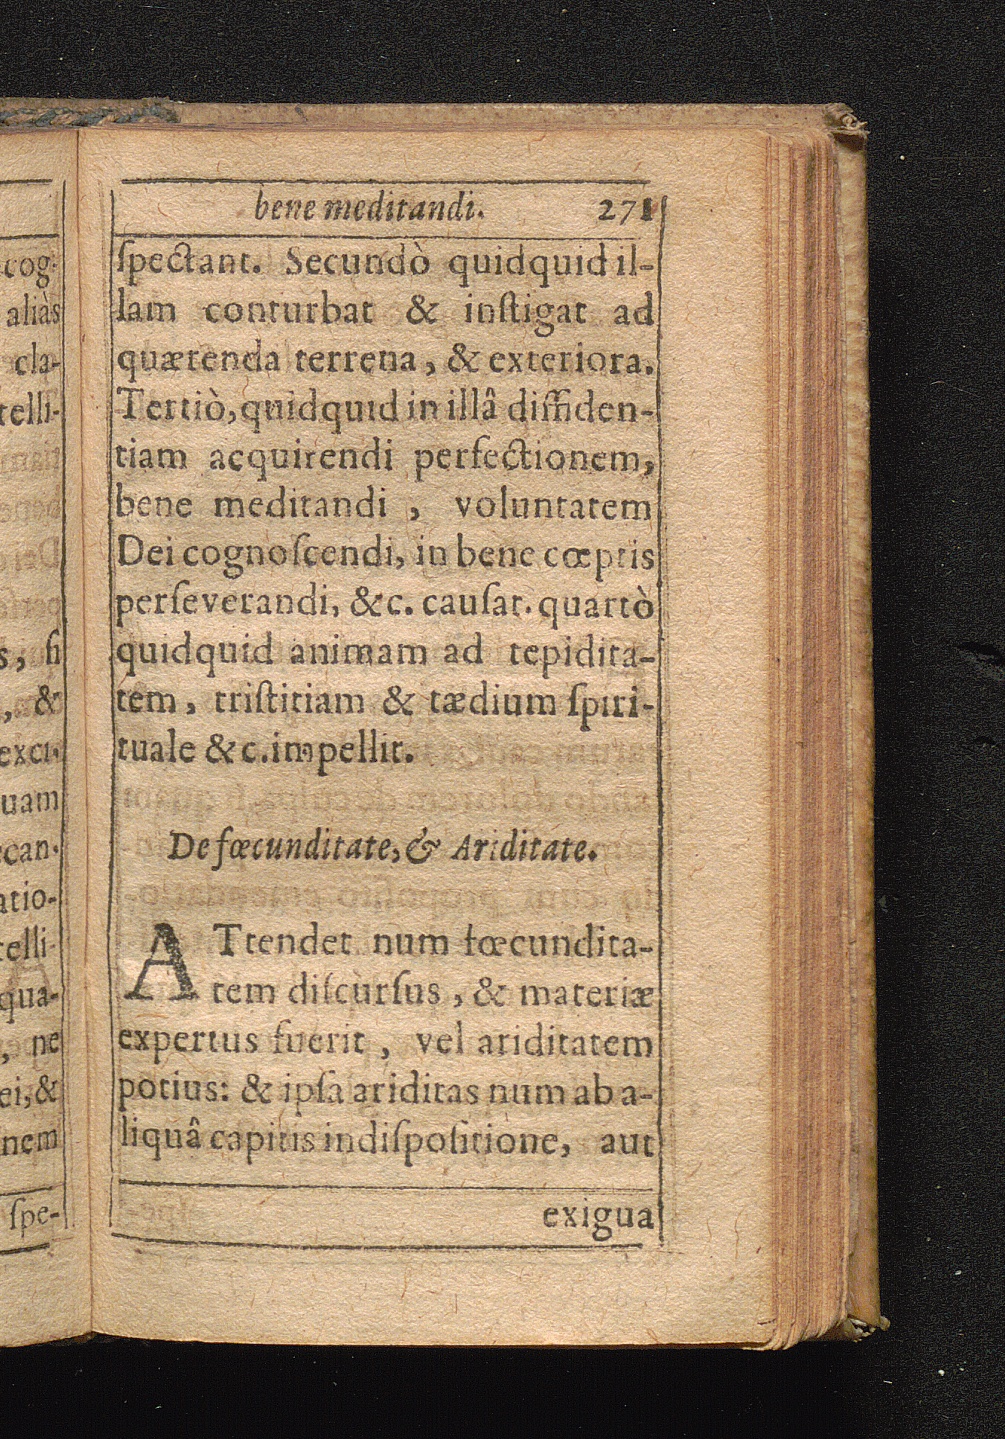 cog-
aliàs
cla-
telli-
s, ſi
, &
exci-
uam
ecan-
atio-
telli-
qua-
, ne
ei, &
nem
ſpe-
bene meditandi. 271
ſpectant. Secundò quidquid il-
lam conturbat & inſtigat ad
quærenda terrena, & exteriora.
Tertiò, quidquid in illâ diffiden-
tiam acquirendi perfectionem,
bene meditandi, voluntatem
Dei cognoſcendi, in bene cœptis
perſeverandi, &c. cauſat. quartò
quidquid animam ad tepidita-
tem, triſtitiam & tædium ſpiri-
tuale &c. impellit.
De fœcunditate, & Ariditate.
ATtendet num fœcundita-
tem diſcurſus, & materiæ
expertus fuerit, vel ariditatem
potius: & ipſa ariditas num ab a-
liquâ capitis indiſpoſitione, aut
exigua